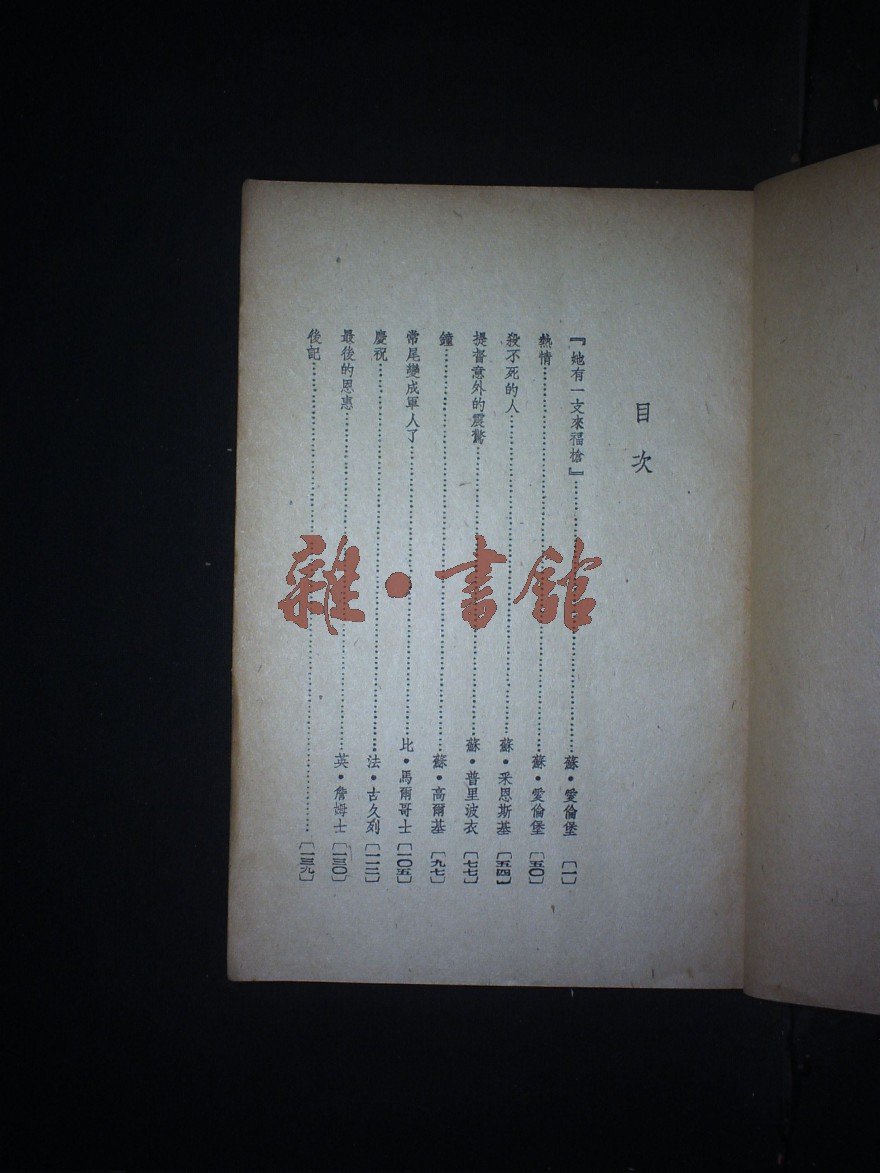 目次
『她有一支來福槍』……蘇·愛倫堡〔一〕
熱情……蘇·愛倫堡〔五〇〕
殺不死的人……蘇·釆恩斯基〔五四〕
提督意外的震驚……蘇·普里波衣〔七七〕
鐘……蘇·高爾基〔九七〕
常尾變成軍人了……比·馬爾哥士〔一〇五〕
慶祝……法·古久列〔一一二〕
最後的恩惠……英·詹姆士〔一三〇〕
後記……〔一三九〕
雜·書館